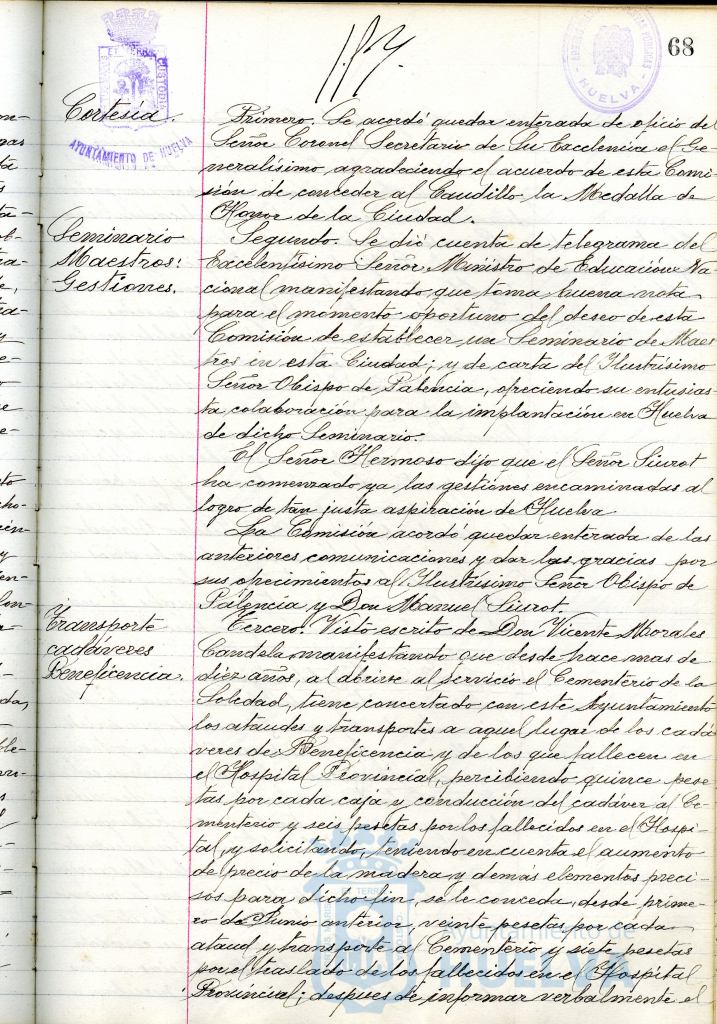 68
AYUNTAMIENTO DE HUELVA
HUELVA
Cortesía.
Primero. Se acordó quedar enterada de oficio del
Señor Coronel Secretario de Su Excelencia el Ge-
neralísimo agradeciendo el acuerdo de esta Comi-
sión de conceder al Caudillo la Medalla de
Honor de la Ciudad.
Seminario
Maestros:
Gestiones.
Segundo. Se dió cuenta de telegrama del
Excelentísimo Señor Ministro de Educación Na-
cional manifestando que toma buena nota
para el momento oportuno del deseo de esta
Comisión de establecer un Seminario de Maes
tros en esta Ciudad; y de carta del Ilustrísimo
Señor Obispo de Palencia, ofreciendo su entusias-
ta colaboración para la implantación en Huelva
de dicho Seminario.
El Señor Hermoso dijo que el Señor Siurot
ha comenzado ya las gestiónes encaminadas al
logro de tan justa aspiración de Huelva
La Comisión acordó quedar enterada de las
anteriores comunicaciones y dar las gracias por
sus ofrecimientos al Ilustrísimo Señor Obispo de
Palencia y Don Manuel Siurot.
Transporte
cadáveres
Beneficencia.
Tercero. Visto escrito de Don Vicente Morales
Candela manifestando que desde hace mas de
diez años, al abrirse al servicio el Cementerio de la
Soledad, tiene concertado con este Ayuntamiento
los ataudes y transportes a aquel lugar de los cadá
veres de Beneficencia y de los que fallecen en
el Hospital Provincial, percibiendo quince pese
tas por cada caja y conducción del cadáver al Ce-
menterio y seis pesetas por los fallecidos en el Hospi-
tal, y solicitando, teniendo en cuenta el aumento
de precio de la madera y demás elementos preci-
sos para dicho fin, se le conceda, desde prime-
ro de Junio anterior, veinte pesetas por cada
ataud y transporte al Cementerio y siete pesetas
por el traslado de los fallecidos en el Hospital
Provincial; despues de informar verbalmente el
Ayuntamiento de
HUELVA